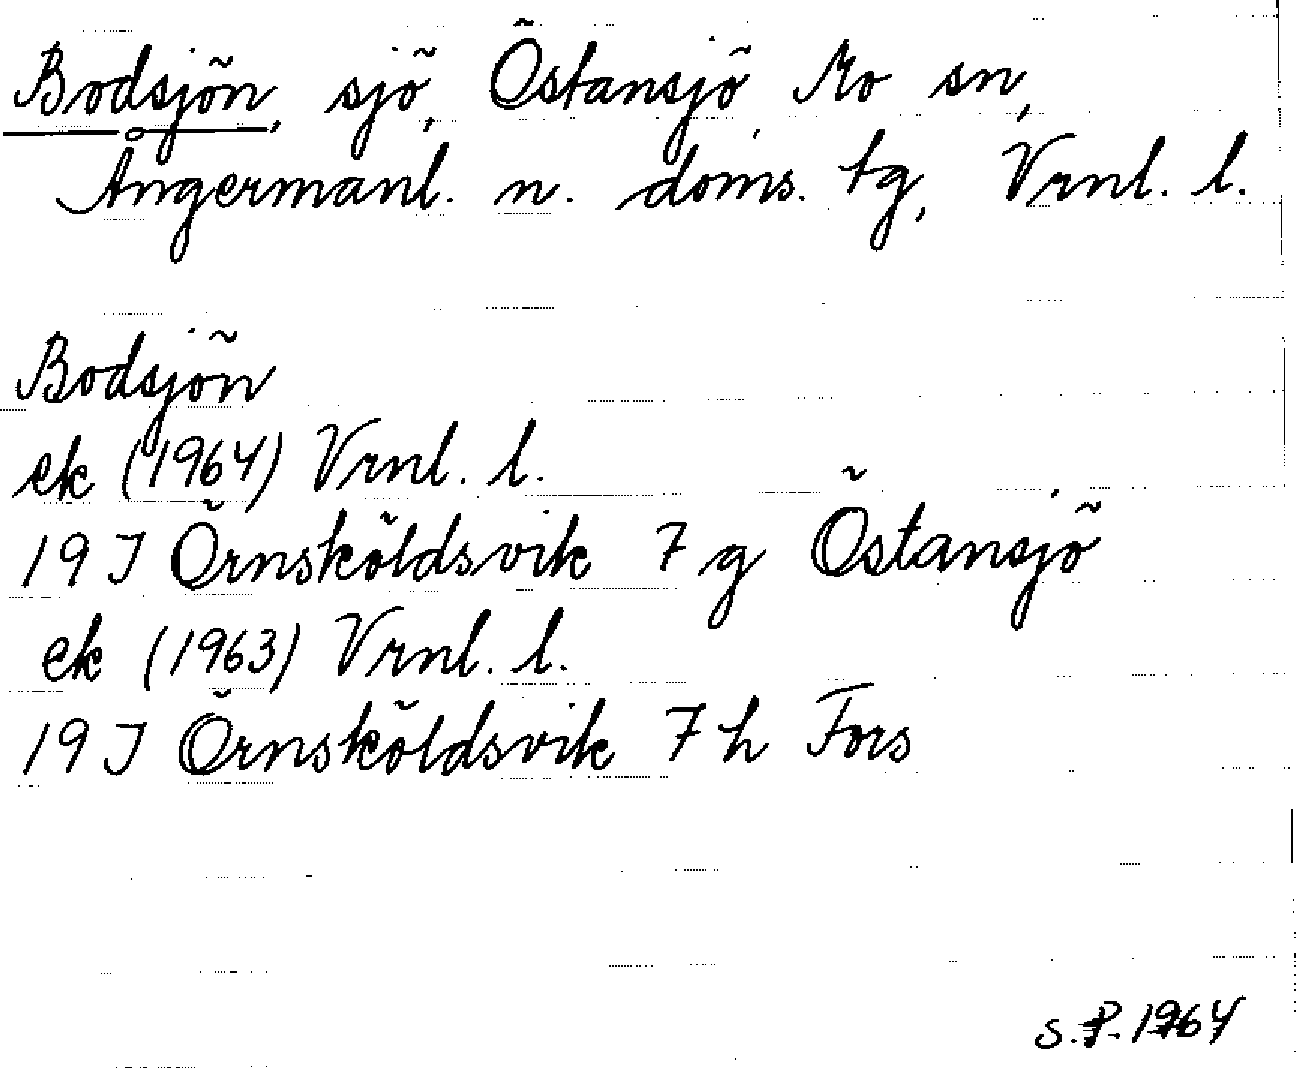 Bodsjön, sjö, Östansjö, Mo sn,
Ångermanl. n. doms. tg, Vrnl. l.
Bodsjön
ek (1964) Vrnl. l.
19 J Örnsköldsvik 7 g Östansjö
ek (1963) Vrnl. l.
19 J Örnsköldsvik 7 h Fors
S.P. 1964